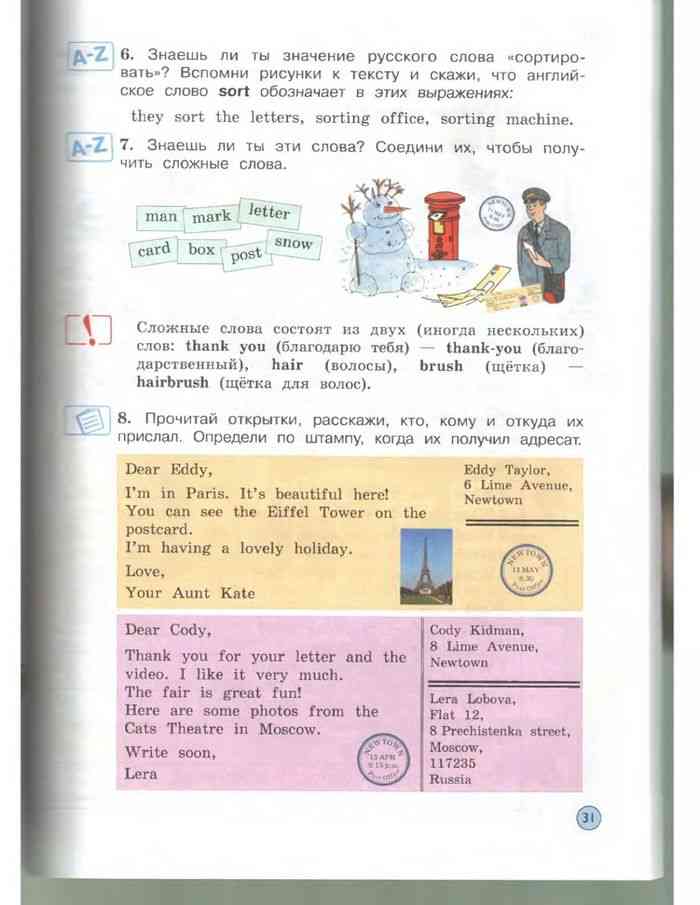 A-Z
6. Знаешь ли ты значение русского слова «сортиро-
вать»? Вспомни рисунки к тексту и скажи, что англий-
ское слово sort обозначает в этих выражениях:
they sort the letters, sorting office, sorting machine.
A-Z
7. Знаешь ли ты эти слова? Соедини их, чтобы полу-
чить сложные слова.
man mark letter
card box post snow
NEWTOWN
!
Сложные слова состоят из двух (иногда нескольких)
слов: thank you (благодарю тебя) — thank-you (благо-
дарственный), hair (волосы), brush (щётка) —
hairbrush (щётка для волос).
8. Прочитай открытки, расскажи, кто, кому и откуда их
прислал. Определи по штампу, когда их получил адресат.
Dear Eddy,
I'm in Paris. It's beautiful here!
You can see the Eiffel Tower on the
postcard.
I'm having a lovely holiday.
Love,
Your Aunt Kate
Eddy Taylor,
6 Lime Avenue,
Newtown
NEWTOWN
11 MAY
Post Office
Dear Cody,
Thank you for your letter and the
video. I like it very much.
The fair is great fun!
Here are some photos from the
Cats Theatre in Moscow.
Write soon,
Lera
NEWTOWN
15 APR
Post Office
Cody Kidman,
8 Lime Avenue,
Newtown
Lera Lobova,
Flat 12,
8 Prechistenka street,
Moscow,
117235
Russia
31